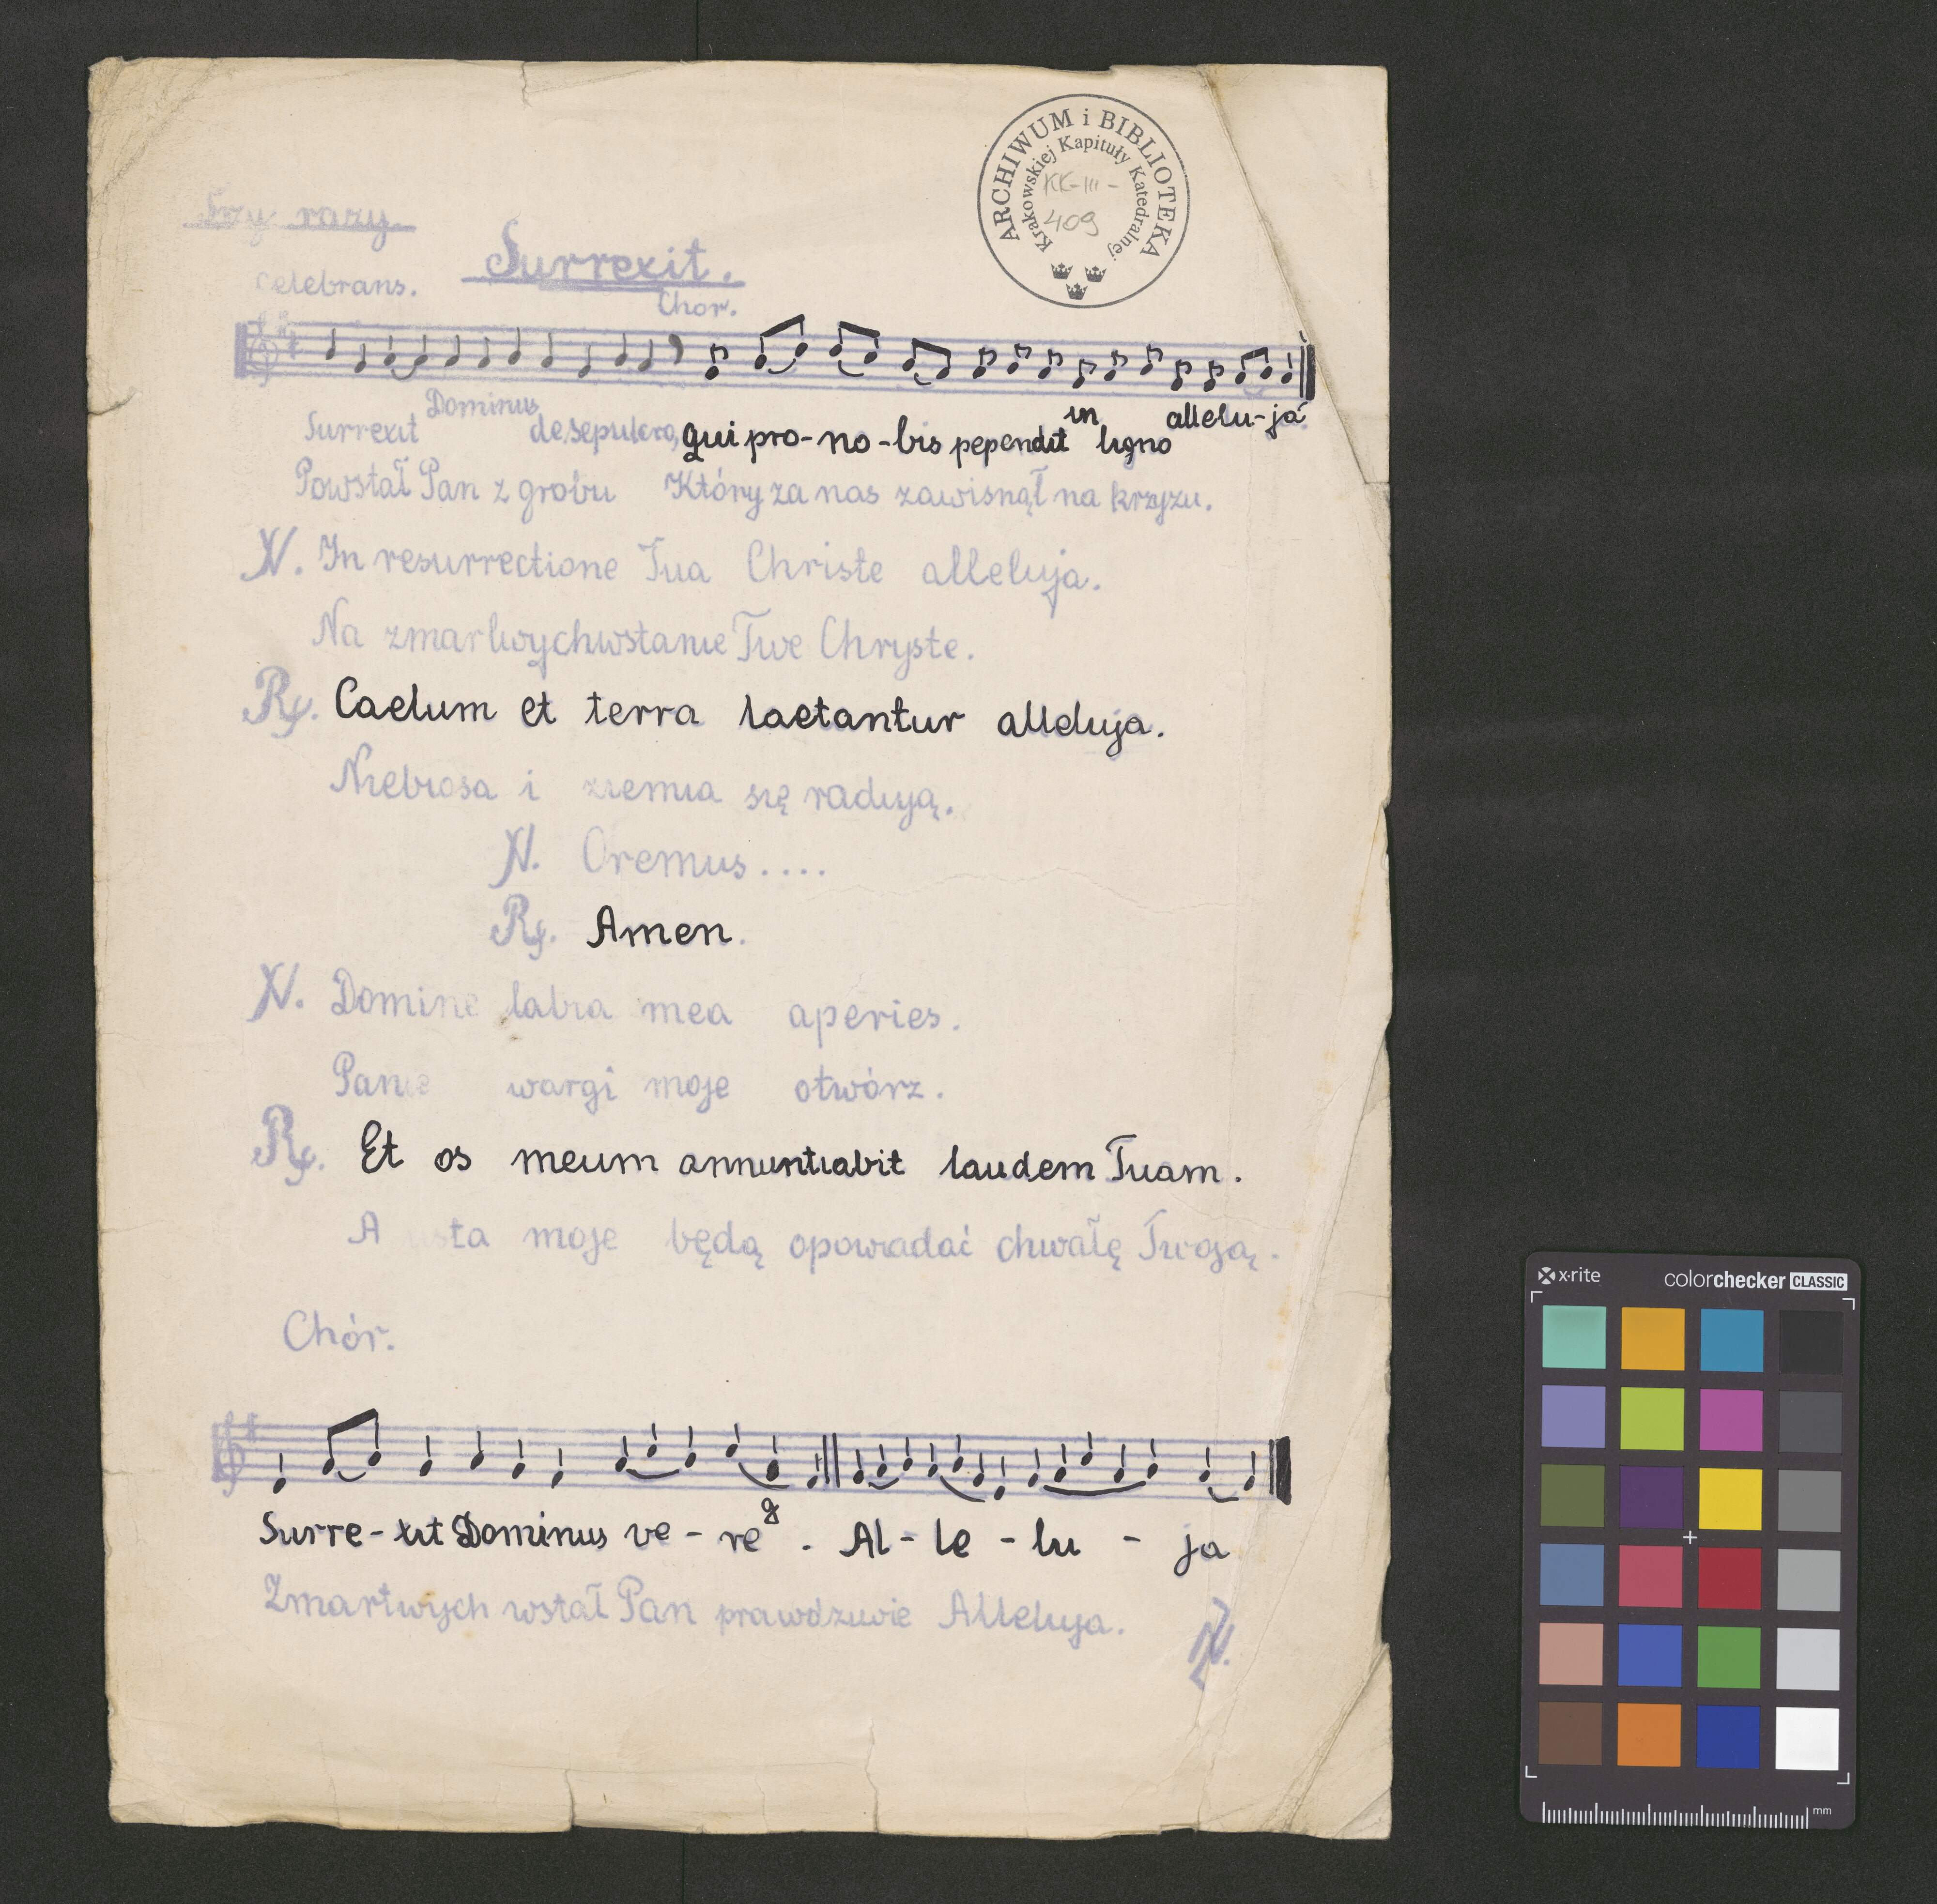 ARCHIWUM i BIBLIOTEKA
Krakowskiej Kapituły Katedralnej
KK-III-
409
Trzy razy.
Surrexit.
Celebrans.
Chor.
Surrexit Dominus de sepulcro, qui pro-no-bis pependit in ligno allelu-ja
Powstał Pan z grobu Który za nas zawisnął na krzyzu.
℣. In resurrectione Tua Christe alleluja.
Na zmartwychwstanie Twe Chryste.
℟. Caelum et terra laetantur alleluja.
Niebiosa i ziemia się radują.
℣. Oremus....
℟. Amen.
℣. Domine labia mea aperies.
Panie wargi moje otwórz.
℟. Et os meum annuntiabit laudem Tuam.
A usta moje będą opowiadać chwałę Twoją.
Chór.
Surre-xit Dominus ve-re. Al-le-lu-ja
Zmartwych wstał Pan prawdziwie Alleluja.
x·rite colorchecker CLASSIC
mm